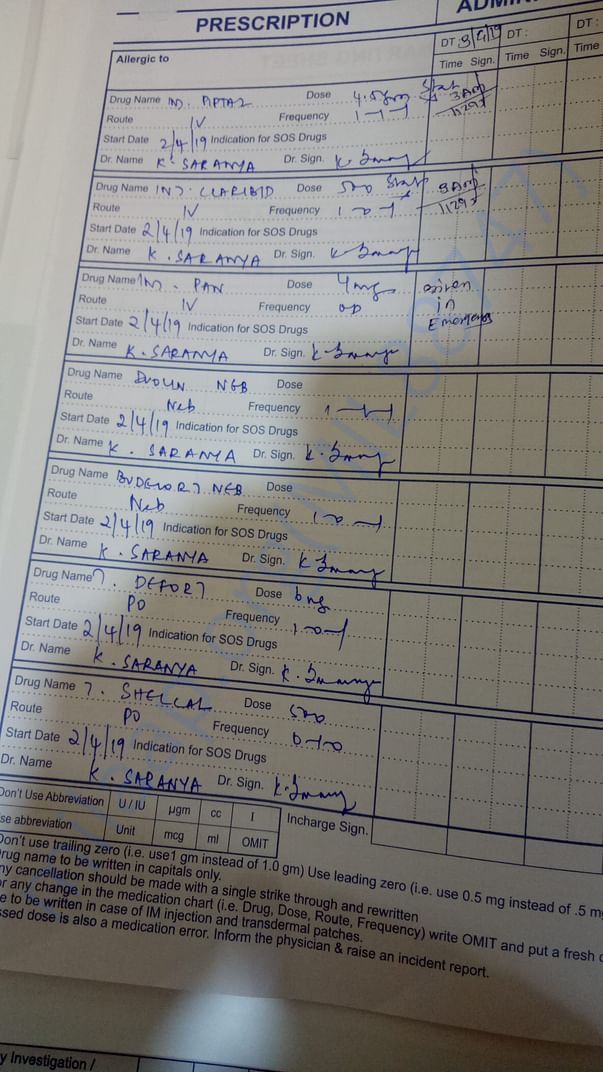 PRESCRIPTION
Allergic to
DT 3/4/19 DT : DT :
Time Sign. Time Sign. Time
Drug Name INJ. PIPTAZ Dose 4.5gm Stat
Route IV Frequency 1-1-1 3AM
Start Date 2/4/19 Indication for SOS Drugs
Dr. Name K. SARANYA Dr. Sign.
Drug Name INJ. CLARIBID Dose 500 Stat
Route IV Frequency 1-0-1
Start Date 2/4/19 Indication for SOS Drugs
Dr. Name K. SARANYA Dr. Sign.
Drug Name INJ. PAN Dose given
Route IV Frequency OD in
Start Date 2/4/19 Indication for SOS Drugs
Dr. Name K. SARANYA Dr. Sign.
Drug Name DUOLIN NEB Dose
Route Neb Frequency
Start Date 2/4/19 Indication for SOS Drugs
Dr. Name K. SARANYA Dr. Sign.
Drug Name BUDECORT NEB Dose
Route Neb Frequency 1-0-1
Start Date 2/4/19 Indication for SOS Drugs
Dr. Name K. SARANYA Dr. Sign.
Drug Name T. DEFORT Dose 6mg
Route PO Frequency 1-0-1
Start Date 2/4/19 Indication for SOS Drugs
Dr. Name K. SARANYA Dr. Sign.
Drug Name T. SHELCAL Dose 500
Route PO Frequency 0-1-0
Start Date 2/4/19 Indication for SOS Drugs
Dr. Name K. SARANYA Dr. Sign.
Don't Use Abbreviation U / IU µgm cc I Incharge Sign.
se abbreviation Unit mcg ml OMIT
Don't use trailing zero (i.e. use1 gm instead of 1.0 gm) Use leading zero (i.e. use 0.5 mg instead of .5 mg
rug name to be written in capitals only.
ny cancellation should be made with a single strike through and rewritten
or any change in the medication chart (i.e. Drug, Dose, Route, Frequency) write OMIT and put a fresh
e to be written in case of IM injection and transdermal patches.
ssed dose is also a medication error. Inform the physician & raise an incident report.
y Investigation /